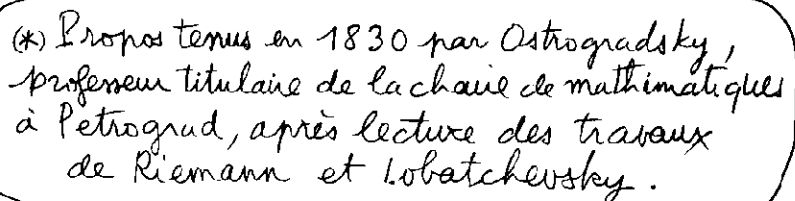 (*) Propos tenus en 1830 par Ostrogradsky,
professeur titulaire de la chaire de mathématiques
à Petrograd, après lecture des travaux
de Riemann et Lobatchevsky.